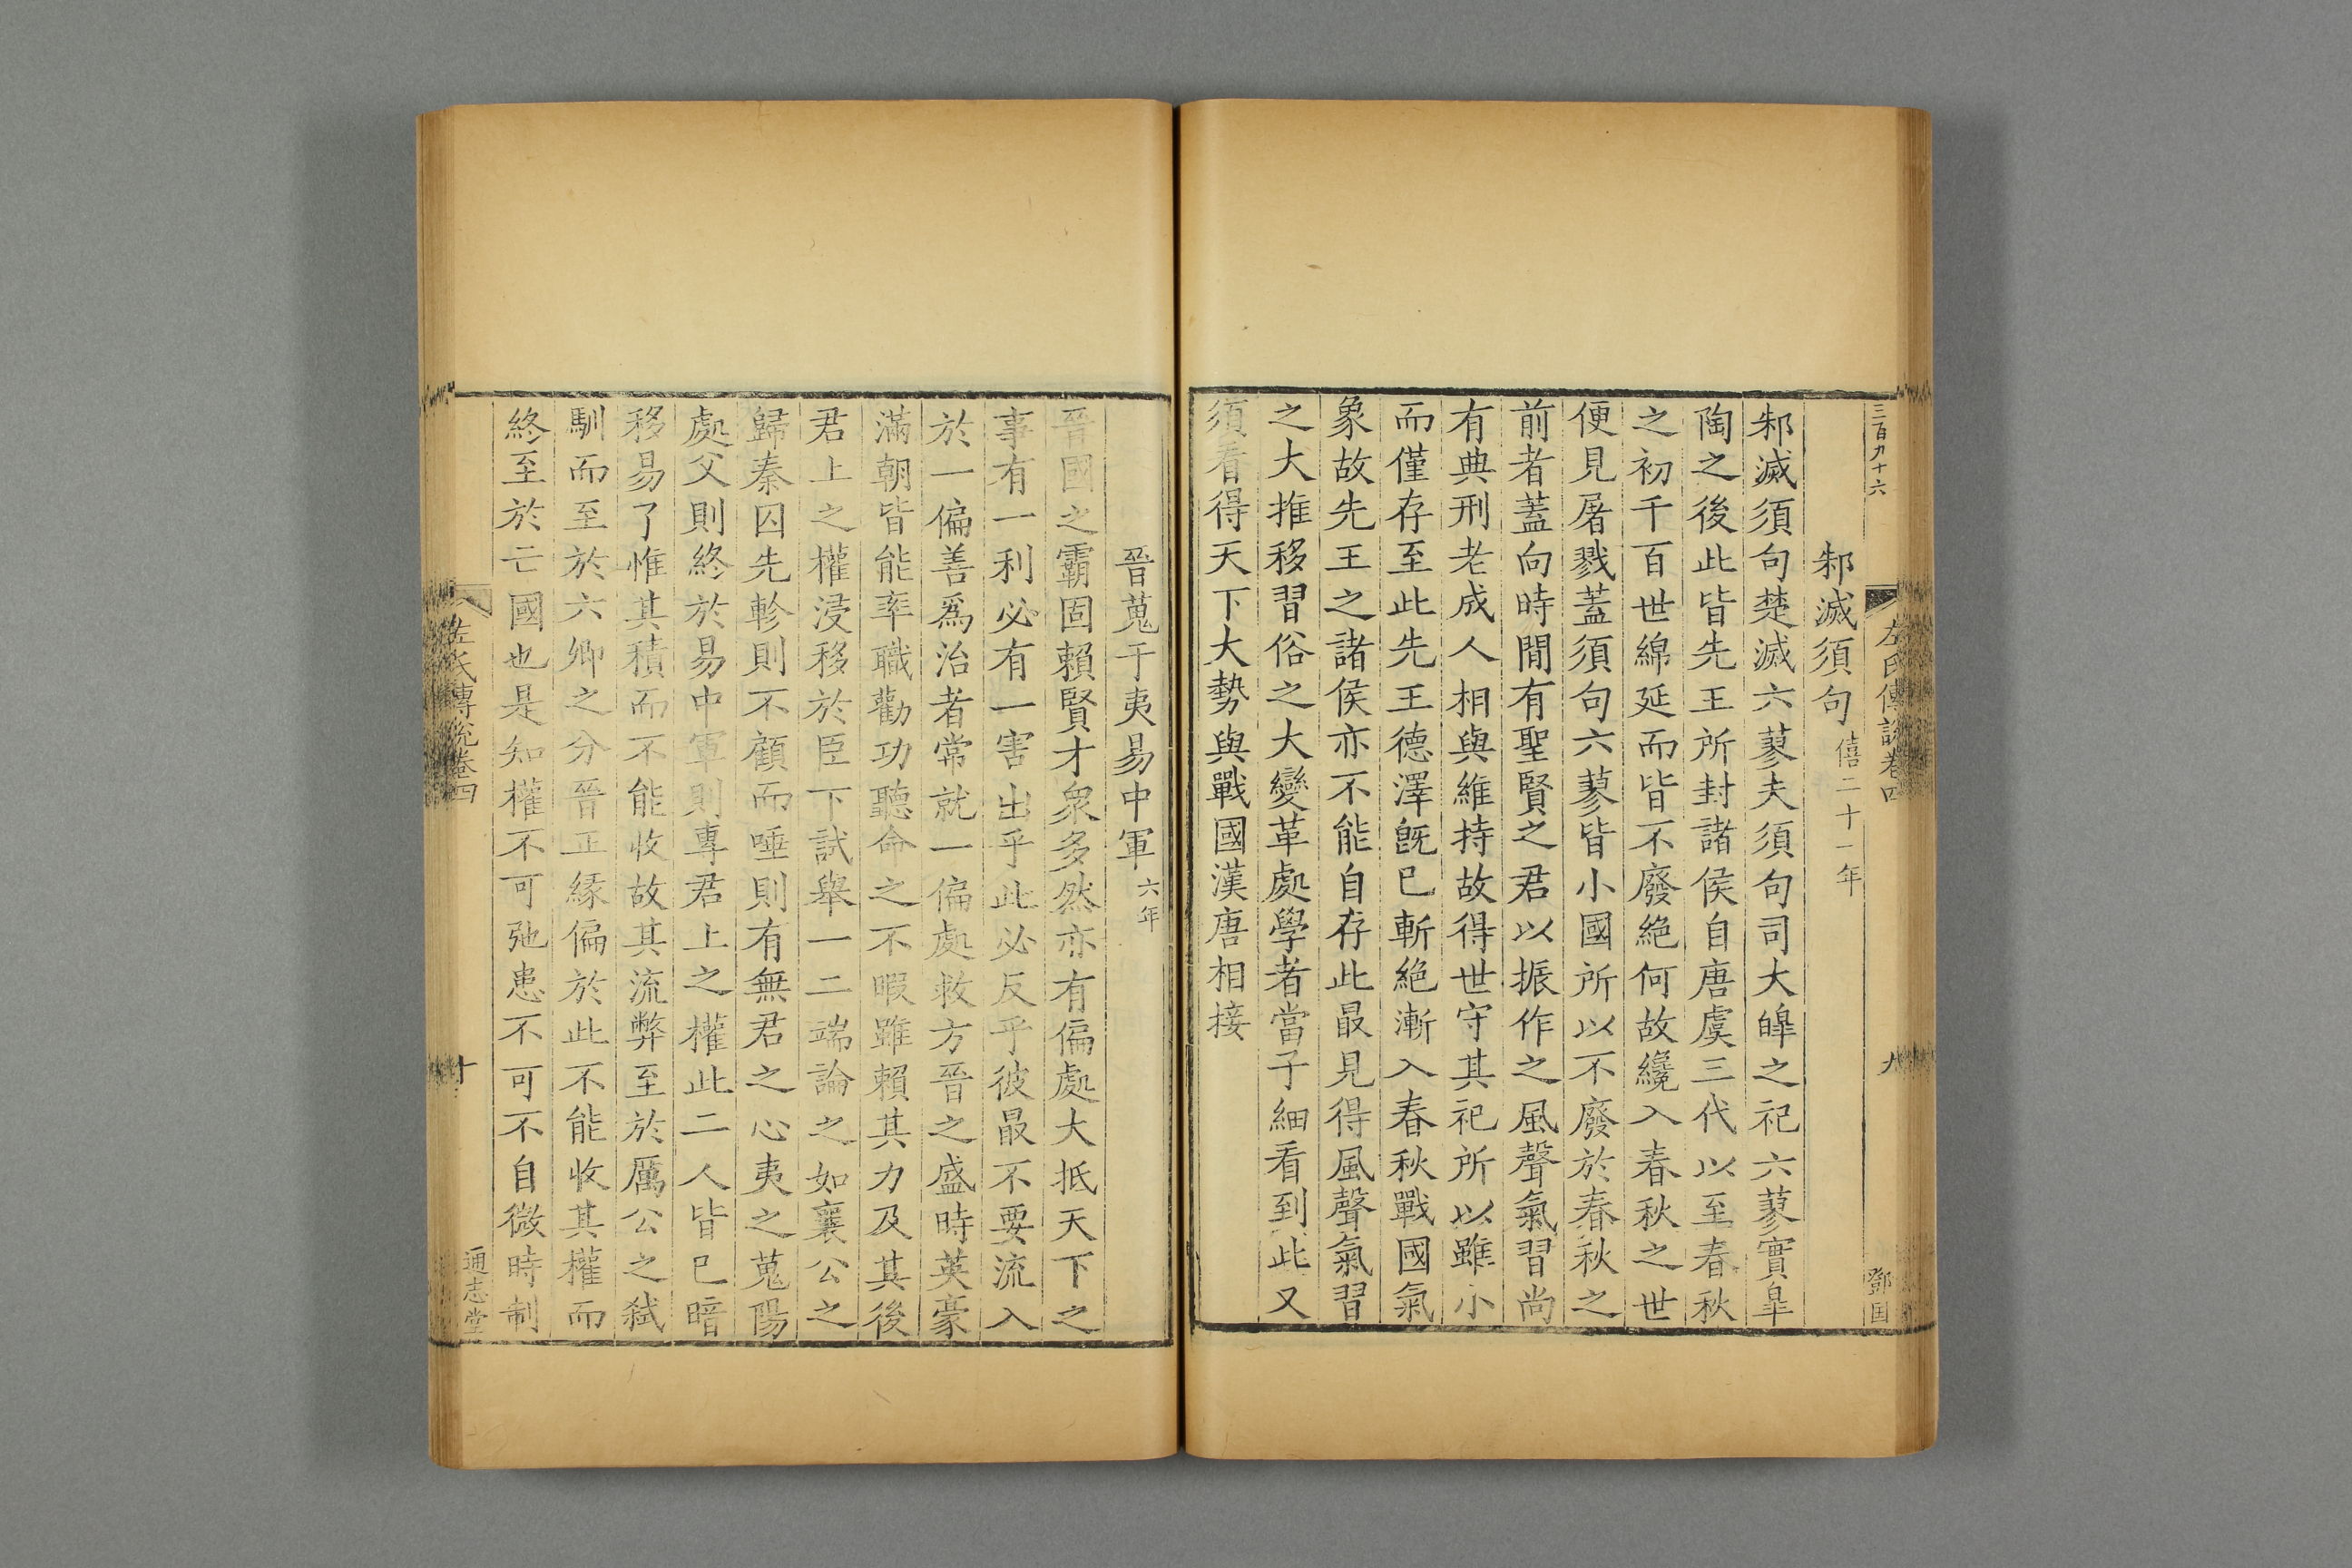 三百九十六
左氏傳說卷四
九
鄧国
邾滅須句僖二十一年
邾滅須句楚滅六蓼夫須句司大皥之祀六蓼實皐
陶之後此皆先王所封諸侯自唐虞三代以至春秋
之初千百世綿延而皆不廢絶何故纔入春秋之世
便見屠戮蓋須句六蓼皆小國所以不廢於春秋之
前者蓋向時間有聖賢之君以振作之風聲氣習尚
有典刑老成人相與維持故得世守其祀所以雖小
而僅存至此先王德澤旣已斬絶漸入春秋戰國氣
象故先王之諸侯亦不能自存此最見得風聲氣習
之大推移習俗之大變革處學者當子細看到此又
須看得天下大勢與戰國漢唐相接
晉蒐于夷易中軍六年
晉國之霸固賴賢才衆多然亦有偏處大抵天下之
事有一利必有一害出乎此必反乎彼最不要流入
於一偏善爲治者常就一偏處救方晉之盛時英豪
滿朝皆能率職勸功聽命之不暇雖賴其力及其後
君上之權浸移於臣下試舉一二端論之如襄公之
歸秦囚先軫則不顧而唾則有無君之心夷之蒐陽
處父則終於易中軍則專君上之權此二人皆已暗
移易了惟其積而不能收故其流弊至於厲公之弑
馴而至於六卿之分晉正緣偏於此不能收其權而
終至於亡國也是知權不可弛患不可不自微時制
左氏傳說卷四
十
通志堂